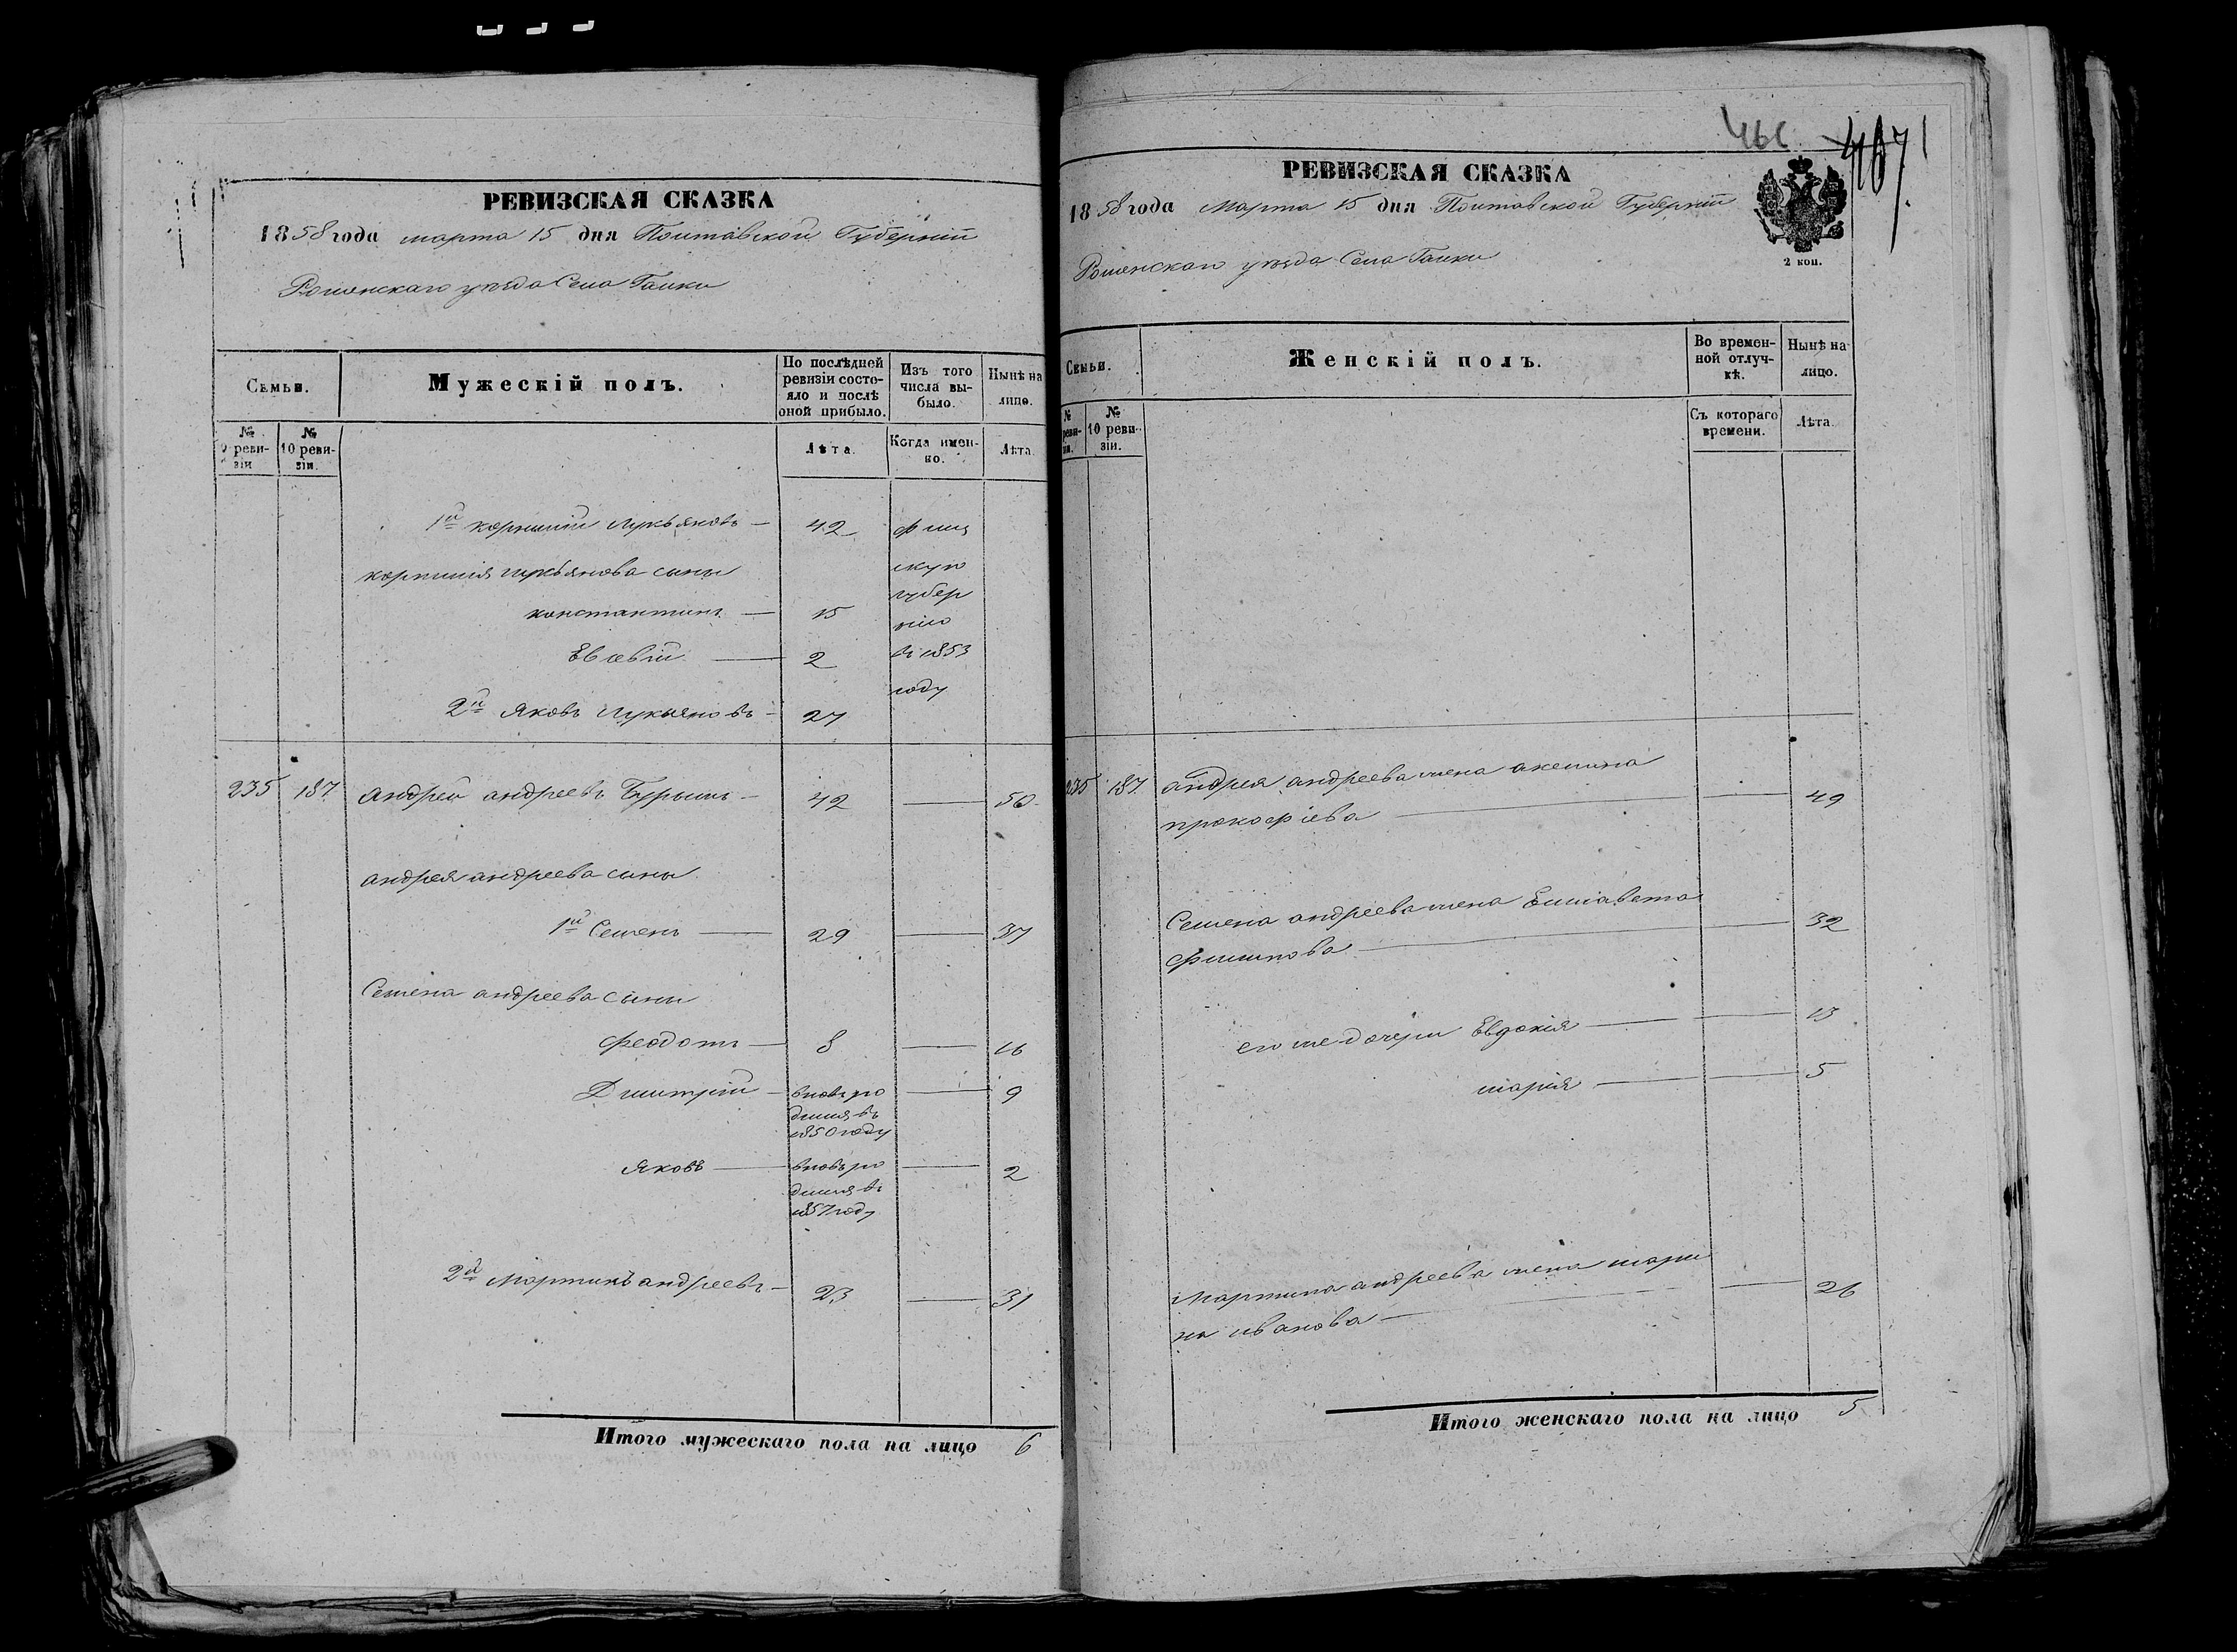 РЕВИЗСКАЯ СКАЗКА
1858 года марта 15 дня Полтавской Губерніи
Роменскаго уѣзда Села Галки
Семьи.
Мужескій полъ.
По послѣдней ревизіи состояло и послѣ оной прибыло.
Изъ того числа выбыло.
Нынѣ на лицо.
№ 9 ревизіи
№ 10 ревизіи.
Лѣта.
Когда именно.
Лѣта.
1й корнилій лукьяновъ — 42
корнилія лукьянова сыны
константинъ — 15
2
скую
губер
нію
въ 1853
году
2й Яковъ Лукьяновъ — 27
235 187 андрей андреевъ Бурымъ — 42 — 50
андрея андреева сыны
1й Семенъ — 29 — 37
Семена андреева сыны
феодотъ — 8 — 16
Дмитрій — вновь ро — 9
дился въ
1850 году
Яковъ — вновь ро — 2
дился въ
1857 году
2й Мартинъ андреевъ — 23 — 31
Итого мужескаго пола на лицо 6
467
РЕВИЗСКАЯ СКАЗКА
1858 года Марта 15 дня Полтавской Губерніи
Роменскаго уѣзда Села Галки
2 коп.
Семьи.
Женскій полъ.
Во временной отлучкѣ.
Нынѣ на лицо.
№ реви-
зіи.
№ 10 ревизіи.
Съ котораго времени.
Лѣта.
235 187 андрея андреева жена акелина
прокофіева — 49
Семена андреева жена Елисавета
филипова — 32
его же дочери Евдокія — 13
марія — 5
Мартина андреева жена мари
на иванова — 26
Итого женскаго пола на лицо 5